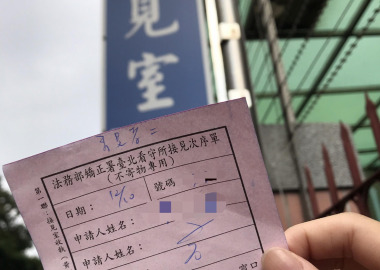 見室
法務部矯正署臺北看守所接見次序單
(不寄物專用)
日期：
12/10
號碼
申請人姓名：
申請人姓名：
窗口
第一聯：接見室收執